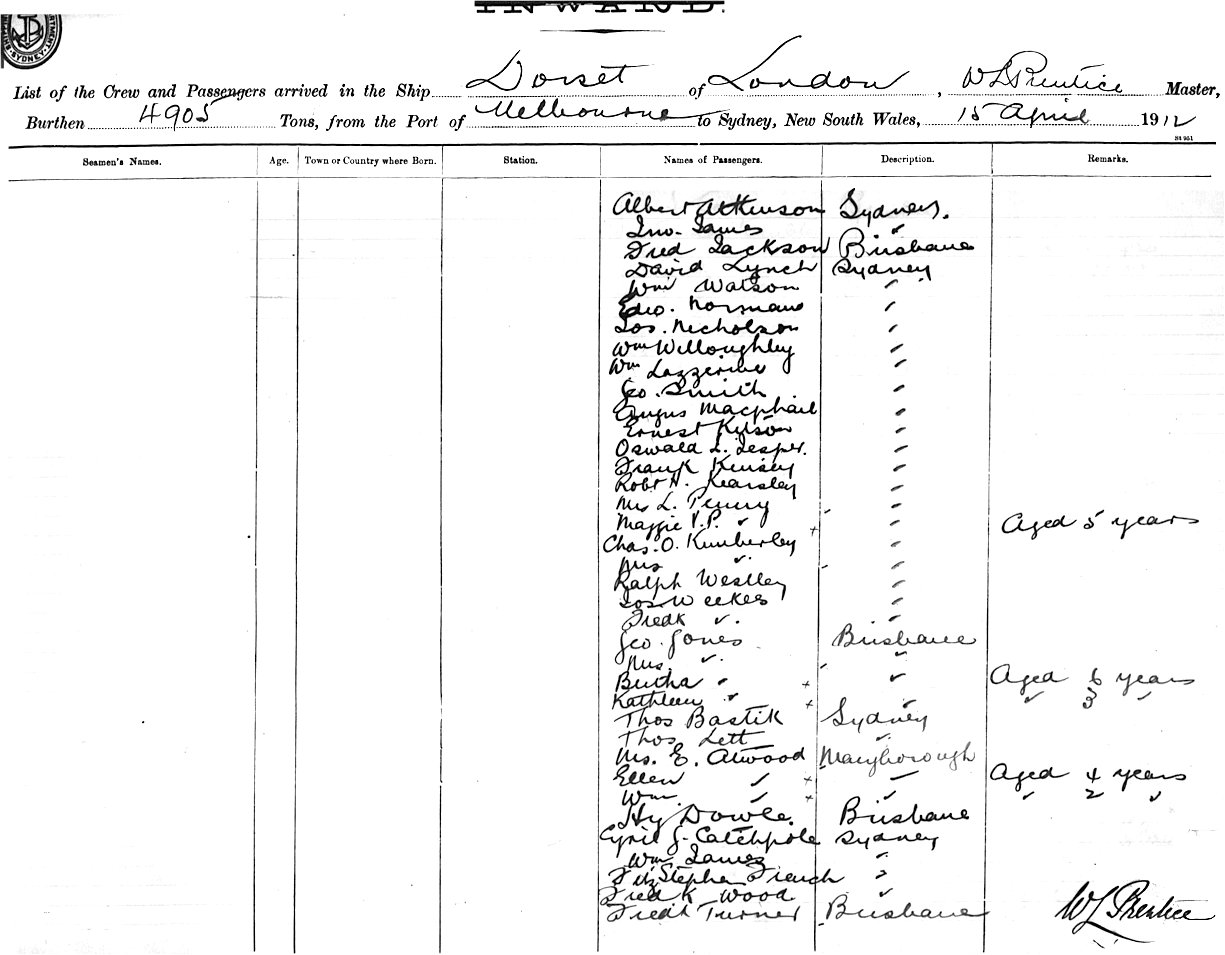 INWARD.
SYDNEY
List of the Crew and Passengers arrived in the Ship Dorset of London, W L Prentice Master,
Burthen 4905 Tons, from the Port of Melbourne to Sydney, New South Wales, 15 April 1912
St 951
Seamen's Names. Age. Town or Country where Born. Station. Names of Passengers. Description. Remarks.
Albert Atkinson Sydney.
Jno. James "
Fred Jackson Brisbane
David Lynch Sydney
Wm Watson "
Edwd. Norman "
Jos. Nicholson "
Wm Willoughley "
Wm "
Geo. Smith "
Angus Macphail "
Ernest Kitson "
Oswald L. Jesper. "
Frank Kinsey "
Robt H. Kearsley "
Mrs L. Penny "
Maggie V.P. " " Aged 5 years
Chas. O. Kimberley "
Mrs " "
Ralph Westley "
Jos. Weekes "
Fredk " "
Geo. Jones Brisbane
Mrs. " "
Bertha " " Aged 6 years
Kathleen " " " 3 "
Thos Bastik Sydney
Thos Lett "
Mrs. E. Atwood Maryborough
Ellen " " Aged 4 years
Wm. " " " 2 "
Hy Dowle. Brisbane
Cyril J. Catchpole Sydney
Wm James "
Fitz Stephen French "
Fredk Wood "
Fredk Turner Brisbane
W L Prentice